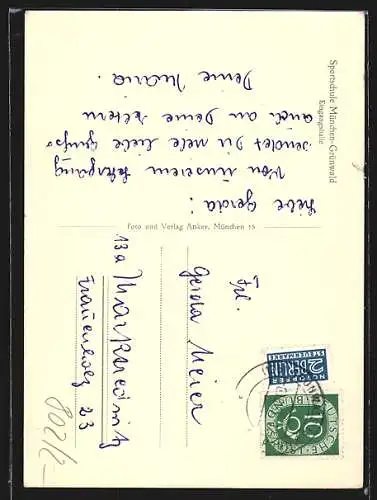 Sportschule München-Grünwald
Eingangshalle
Liebe Gerda!
Von unserem Lehrgang
sendet Dir viele liebe Grüße
auch an Deine Eltern
Deine Maria.
Foto und Verlag Anker, München 15
NOTOPFER
2 BERLIN
STEUERMARKE
DEUTSCHE BUNDESPOST
10
Frl.
Gerda Meier
13a Marktredwitz
Frauenholz 23
802/2-